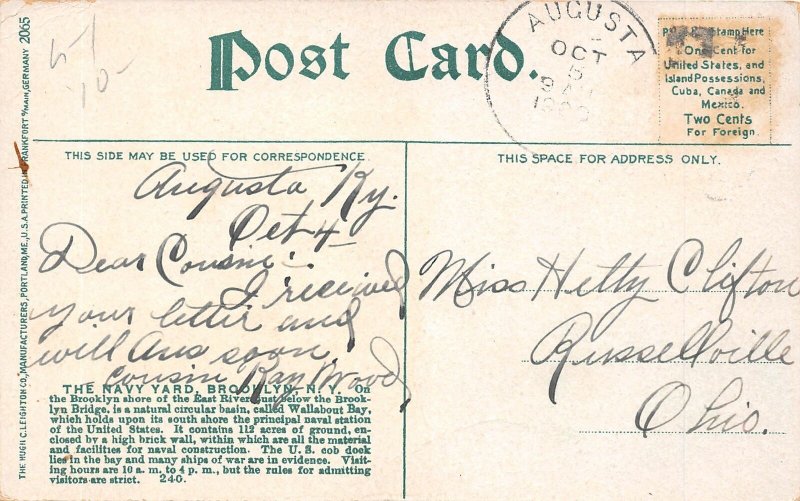 Post Card.
AUGUSTA
OCT
5
Stamp Here
One Cent for
United States, and
Island Possessions,
Cuba, Canada and
Mexico.
Two Cents
For Foreign.
THIS SIDE MAY BE USED FOR CORRESPONDENCE.
THIS SPACE FOR ADDRESS ONLY.
Augusta Ky.
Oct 4
Dear Cousin:-
I received
your letter and
will Ans soon.
Cousin Ray Wood
Miss Hetty Clifton
Russellville
Ohio.
THE NAVY YARD, BROOKLYN, N. Y. On
the Brooklyn shore of the East River just below the Brook-
lyn Bridge, is a natural circular basin, called Wallabout Bay,
which holds upon its south shore the principal naval station
of the United States. It contains 112 acres of ground, en-
closed by a high brick wall, within which are all the material
and facilities for naval construction. The U. S. cob dock
lies in the bay and many ships of war are in evidence. Visit-
ing hours are 10 a. m. to 4 p. m., but the rules for admitting
visitors are strict. 240.
THE HUGH C. LEIGHTON CO., MANUFACTURERS, PORTLAND, ME., U.S.A. PRINTED IN FRANKFORT o/MAIN, GERMANY 2065